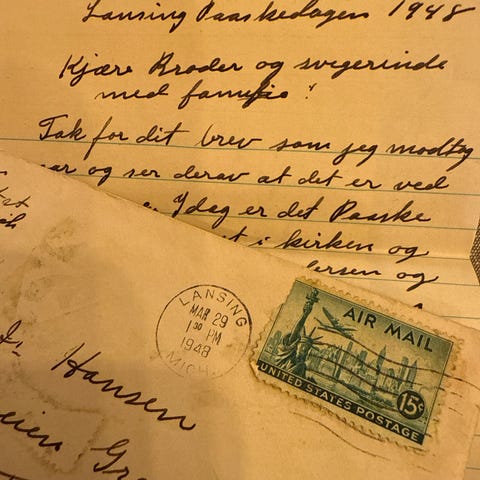 Lansing Paaskedagen 1948
Kjære Broder og svigerinde
med familie!
Tak for dit brev som jeg modtog
og ser derav at det er ved
Idag er det Paaske
i kirken og
og
LANSING
MAR 29
1 30 PM
1948
MICH.
AIR MAIL
UNITED STATES POSTAGE
15¢
Hansen